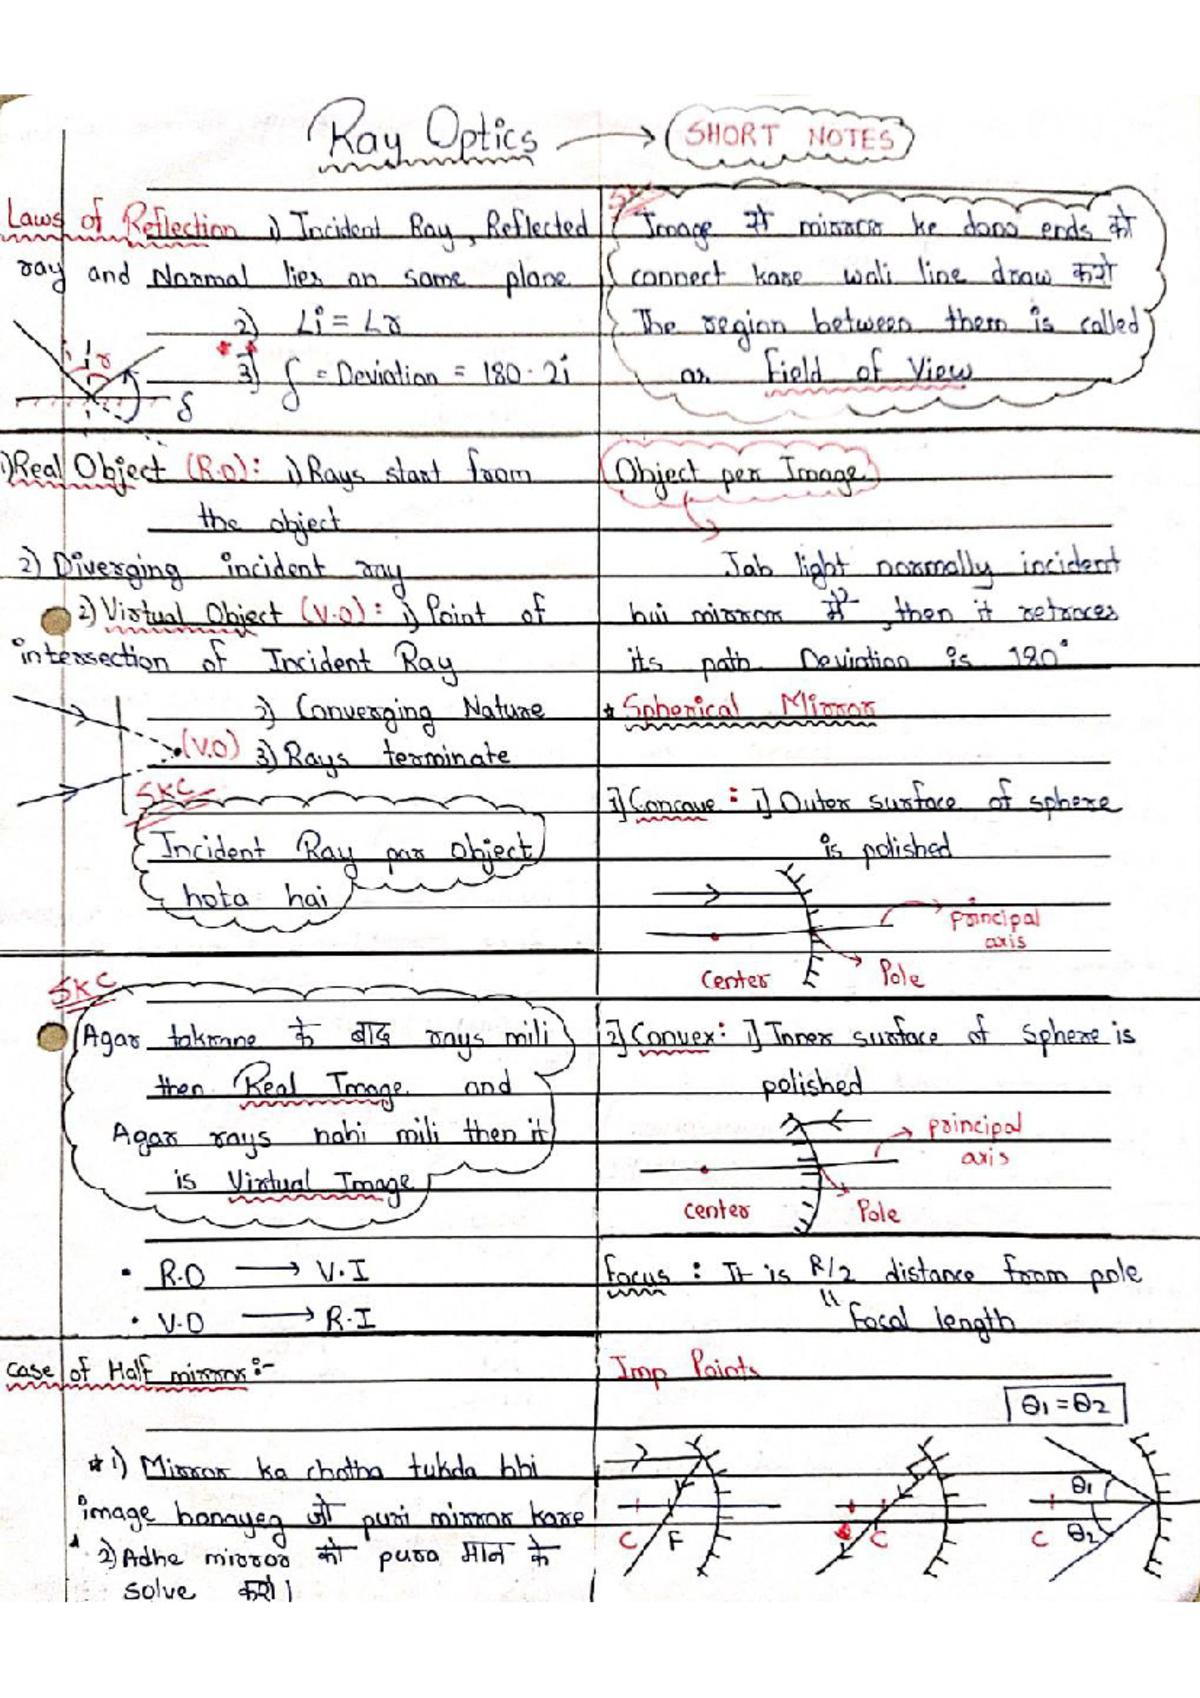 Ray Optics → SHORT NOTES
Laws of Reflection 1) Incident Ray, Reflected
ray and Normal lies on same plane
2) ∠i = ∠r
3) δ = Deviation = 180 - 2i
i r
δ
1) Real Object (R.O): i) Rays start from
the object
2) Diverging incident ray
2) Virtual Object (V.O): i) Point of
intersection of Incident Ray
2) Converging Nature
(V.O) 3) Rays terminate
SKC
Incident Ray par object
hota hai
SKC
Agar takrane के बाद rays mili
then Real Image and
Agar rays nahi mili then it
is Virtual Image
• R.O → V.I
• V.O → R.I
case of Half mirror:-
* 1) Mirror ka chotha tukda bhi
image banayeg जो puri mirror kare
2) Adhe mirror को pura मान के
solve करो।
SKC
Image से mirror ke dono ends को
connect kare wali line draw करो
The region between them is called
as Field of View
Object per Image
Jab light normally incident
hui mirror में, then it retraces
its path. Deviation is 180°
* Spherical Mirror
1] Concave: 1] Outer surface of sphere
is polished
principal
axis
center Pole
2] Convex: 1] Inner surface of Sphere is
polished
principal
axis
center Pole
Focus: It is R/2 distance from pole
" Focal length
Imp Points
θ1 = θ2
θ1
C F C C θ2